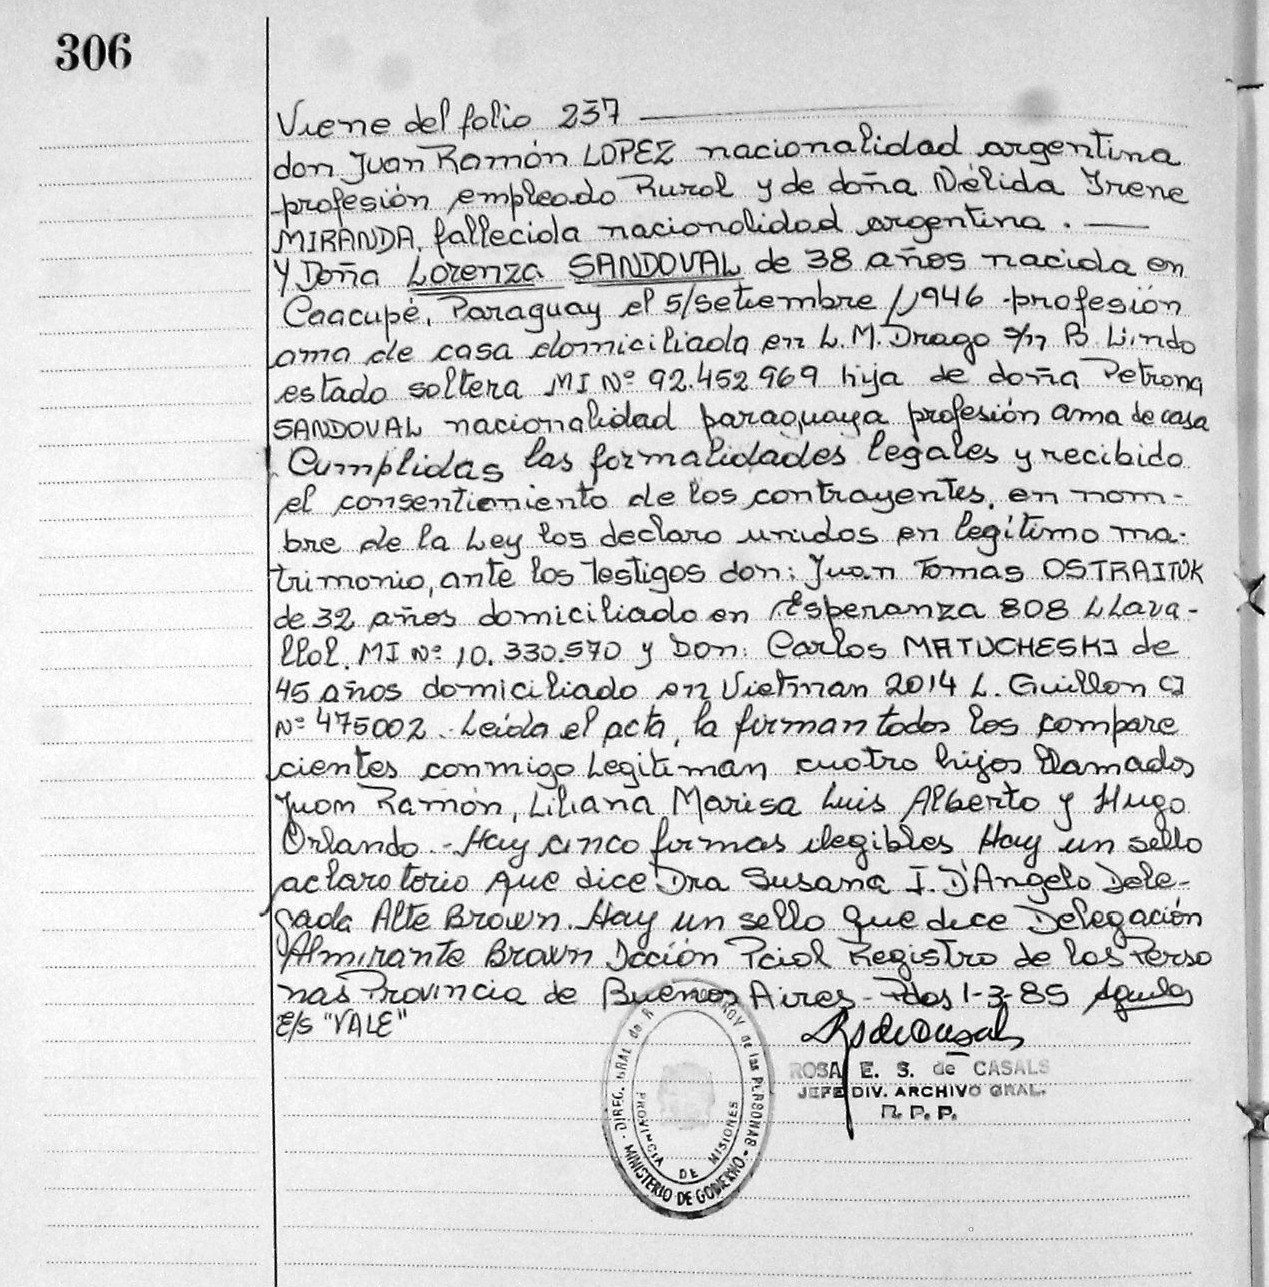 306
Viene del folio 237
don Juan Ramón LOPEZ nacionalidad argentina
profesión empleado Rural y de doña Nélida Irene
MIRANDA, fallecida nacionalidad argentina. —
Y Doña Lorenza SANDOVAL de 38 años nacida en
Caacupé, Paraguay el 5/setiembre/1946 profesión
ama de casa domiciliada en L. M. Drago s/n B. Lindo
estado soltera MI Nº 92.452.969 hija de doña Petrona
SANDOVAL nacionalidad paraguaya profesión ama de casa
Cumplidas las formalidades legales y recibido
el consentimiento de los contrayentes, en nom-
bre de la Ley los declaro unidos en legítimo ma-
trimonio, ante los testigos don: Juan Tomas OSTRAITUK
de 32 años domiciliado en Esperanza 808 LLava-
llol. MI Nº 10.330.570 y Don: Carlos MATUCHESKI de
45 años domiciliado en Vietman 2014 L. Guillon CI
Nº 475002. Leída el acta, la firman todos los compare
cientes conmigo Legitiman cuatro hijos llamados
Juan Ramón, Liliana Marisa Luis Alberto y Hugo
Orlando.- Hay cinco firmas ilegibles Hay un sello
aclaratorio que dice Dra Susana I. D'Angelo Dele-
gada Alte Brown. Hay un sello que dice Delegación
Almirante Brown Dcción Pcial Registro de las Perso
nas Provincia de Buenos Aires - Pdas 1-3-85
E/s "VALE"
ROSA E. S. de CASALS
JEFE DIV. ARCHIVO GRAL.
R. P. P.
DIREC. GRAL de R PROV de las PERSONAS
PROVINCIA DE MISIONES
MINISTERIO DE GOBIERNO